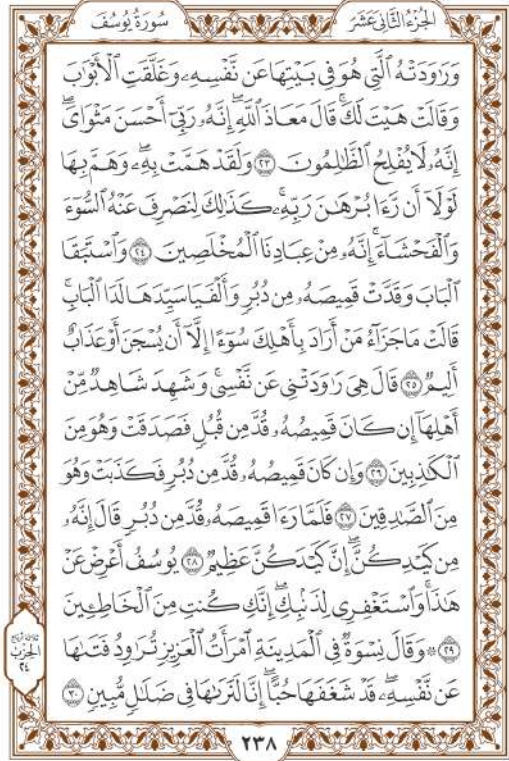 الجُزْءُ الثَّانِي عَشَرَ
سُورَةُ يُوسُفَ
وَرَٰوَدَتْهُ ٱلَّتِي هُوَ فِي بَيْتِهَا عَن نَّفْسِهِۦ وَغَلَّقَتِ ٱلْأَبْوَٰبَ
وَقَالَتْ هَيْتَ لَكَۚ قَالَ مَعَاذَ ٱللَّهِۖ إِنَّهُۥ رَبِّيٓ أَحْسَنَ مَثْوَايَۖ
إِنَّهُۥ لَا يُفْلِحُ ٱلظَّٰلِمُونَ ٢٣ وَلَقَدْ هَمَّتْ بِهِۦۖ وَهَمَّ بِهَا
لَوْلَآ أَن رَّءَا بُرْهَٰنَ رَبِّهِۦۚ كَذَٰلِكَ لِنَصْرِفَ عَنْهُ ٱلسُّوٓءَ
وَٱلْفَحْشَآءَۚ إِنَّهُۥ مِنْ عِبَادِنَا ٱلْمُخْلَصِينَ ٢٤ وَٱسْتَبَقَا
ٱلْبَابَ وَقَدَّتْ قَمِيصَهُۥ مِن دُبُرٍ وَأَلْفَيَا سَيِّدَهَا لَدَا ٱلْبَابِۚ
قَالَتْ مَا جَزَآءُ مَنْ أَرَادَ بِأَهْلِكَ سُوٓءًا إِلَّآ أَن يُسْجَنَ أَوْ عَذَابٌ
أَلِيمٌ ٢٥ قَالَ هِيَ رَٰوَدَتْنِي عَن نَّفْسِيۚ وَشَهِدَ شَاهِدٌ مِّنْ
أَهْلِهَآ إِن كَانَ قَمِيصُهُۥ قُدَّ مِن قُبُلٍ فَصَدَقَتْ وَهُوَ مِنَ
ٱلْكَٰذِبِينَ ٢٦ وَإِن كَانَ قَمِيصُهُۥ قُدَّ مِن دُبُرٍ فَكَذَبَتْ وَهُوَ
مِنَ ٱلصَّٰدِقِينَ ٢٧ فَلَمَّا رَءَا قَمِيصَهُۥ قُدَّ مِن دُبُرٍ قَالَ إِنَّهُۥ
مِن كَيْدِكُنَّۖ إِنَّ كَيْدَكُنَّ عَظِيمٌ ٢٨ يُوسُفُ أَعْرِضْ عَنْ
هَٰذَاۚ وَٱسْتَغْفِرِي لِذَنۢبِكِۖ إِنَّكِ كُنتِ مِنَ ٱلْخَاطِـِٔينَ
٢٩ ۞ وَقَالَ نِسْوَةٌ فِي ٱلْمَدِينَةِ ٱمْرَأَتُ ٱلْعَزِيزِ تُرَٰوِدُ فَتَىٰهَا
عَن نَّفْسِهِۦۖ قَدْ شَغَفَهَا حُبًّاۖ إِنَّا لَنَرَىٰهَا فِي ضَلَٰلٍ مُّبِينٍ ٣٠
الحِزْبُ
٢٤
٢٣٨